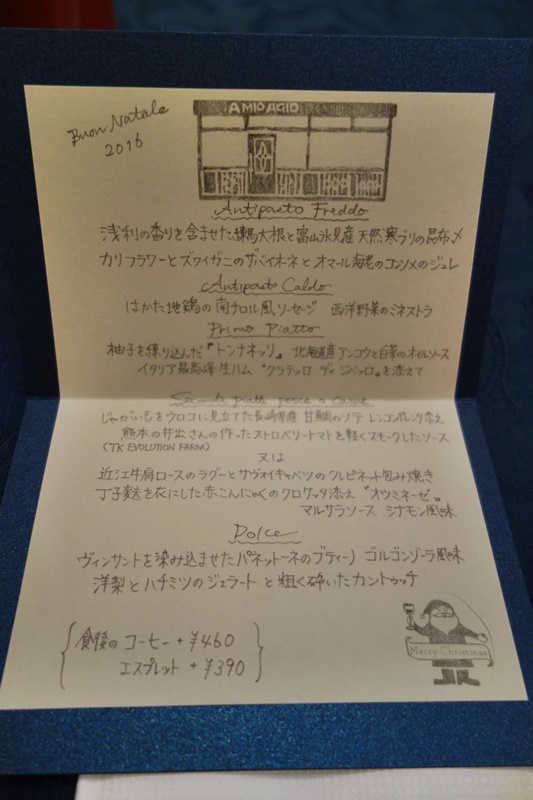 Buon Natale
2016
AMIO AGIO
Antipasto Freddo
浅利の香りを含ませた練馬大根と富山氷見産 天然寒ブリの昆布〆
カリフラワーとズワイガニのザバイオーネと オマール海老のコンソメのジュレ
Antipasto Caldo
はかた地鶏の南チロル風ソーセージ 西洋野菜のミネストラ
Primo Piatto
柚子を練り込んだ『トンナレッリ』 北海道産アンコウと白菜のオイルソース
イタリア最高峰生ハム “クラテッロ ディ ジベッロ„を添えて
Secondi piatti pesce o carne
じゃがいもをウロコに見立てた長崎県産 甘鯛のソテー レンコンポレンタ添え
熊本の井出さんの作ったストロベリートマトを軽くスモークしたソース
(TK EVOLUTION FARM)
又は
近江牛肩ロースのラグーとサヴォイキャベツのクレピネット包み焼き
丁子麩を衣にした赤こんにゃくのクロケッタ添え “オウミネーゼ„
マルサラソース シナモン風味
Dolce
ヴィンサントを染み込ませたパネットーネのブディーノ ゴルゴンゾーラ風味
洋梨とハチミツのジェラート と粗く砕いたカントゥッチ
食後の コーヒー +¥460
エスプレット +¥390
Merry Christmas